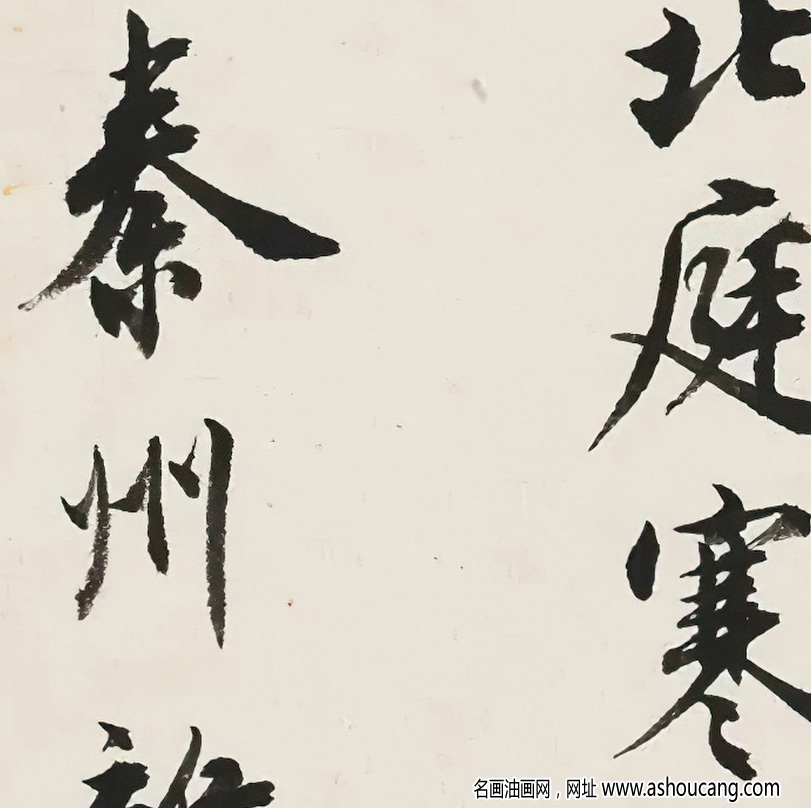 北庭寒
秦州
名画油画网，网址 www.ashoucang.com